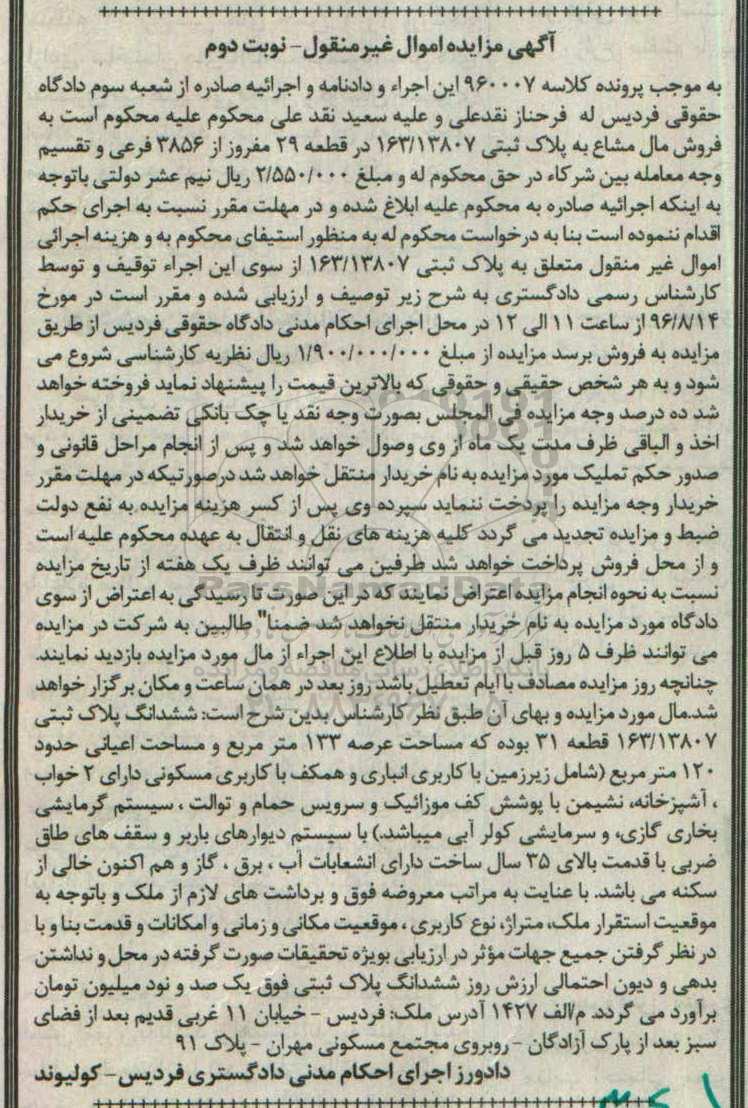 آگهی مزایده اموال غیرمنقول- نوبت دوم
به موجب پرونده کلاسه ۹۶۰۰۰۷ این اجراء و دادنامه و اجرائیه صادره از شعبه سوم دادگاه
حقوقی فردیس له فرحناز نقدعلی و علیه سعید نقد علی محکوم علیه محکوم است به
فروش مال مشاع به پلاک ثبتی ۱۶۳/۱۳۸۰۷ در قطعه ۲۹ مفروز از ۳۸۵۶ فرعی و تقسیم
وجه معامله بین شرکاء در حق محکوم له و مبلغ ۲/۵۵۰/۰۰۰ ریال نیم عشر دولتی باتوجه
به اینکه اجرائیه صادره به محکوم علیه ابلاغ شده و در مهلت مقرر نسبت به اجرای حکم
اقدام ننموده است بنا به درخواست محکوم له به منظور استیفای محکوم به و هزینه اجرائی
اموال غیر منقول متعلق به پلاک ثبتی ۱۶۳/۱۳۸۰۷ از سوی این اجراء توقیف و توسط
کارشناس رسمی دادگستری به شرح زیر توصیف و ارزیابی شده و مقرر است در مورخ
۹۶/۸/۱۴ از ساعت ۱۱ الی ۱۲ در محل اجرای احکام مدنی دادگاه حقوقی فردیس از طریق
مزایده به فروش برسد مزایده از مبلغ ۱/۹۰۰/۰۰۰/۰۰۰ ریال نظریه کارشناسی شروع می
شود و به هر شخص حقیقی و حقوقی که بالاترین قیمت را پیشنهاد نماید فروخته خواهد
شد ده درصد وجه مزایده فی المجلس بصورت وجه نقد یا چک بانکی تضمینی از خریدار
اخذ و الباقی ظرف مدت یک ماه از وی وصول خواهد شد و پس از انجام مراحل قانونی و
صدور حکم تملیک مورد مزایده به نام خریدار منتقل خواهد شد درصورتیکه در مهلت مقرر
خریدار وجه مزایده را پردخت ننماید سپرده وی پس از کسر هزینه مزایده به نفع دولت
ضبط و مزایده تجدید می گردد کلیه هزینه های نقل و انتقال به عهده محکوم علیه است
و از محل فروش پرداخت خواهد شد طرفین می توانند ظرف یک هفته از تاریخ مزایده
نسبت به نحوه انجام مزایده اعتراض نمایند که در این صورت تا رسیدگی به اعتراض از سوی
دادگاه مورد مزایده به نام خریدار منتقل نخواهد شد ضمنا" طالبین به شرکت در مزایده
می توانند ظرف ۵ روز قبل از مزایده با اطلاع این اجراء از مال مورد مزایده بازدید نمایند.
چنانچه روز مزایده مصادف با ایام تعطیل باشد روز بعد در همان ساعت و مکان برگزار خواهد
شد.مال مورد مزایده و بهای آن طبق نظر کارشناس بدین شرح است: ششدانگ پلاک ثبتی
۱۶۳/۱۳۸۰۷ قطعه ۳۱ بوده که مساحت عرصه ۱۳۳ متر مربع و مساحت اعیانی حدود
۱۲۰ متر مربع (شامل زیرزمین با کاربری انباری و همکف با کاربری مسکونی دارای ۲ خواب
، آشپزخانه، نشیمن با پوشش کف موزائیک و سرویس حمام و توالت ، سیستم گرمایشی
بخاری گازی، و سرمایشی کولر آبی میباشد.) با سیستم دیوارهای باربر و سقف های طاق
ضربی با قدمت بالای ۳۵ سال ساخت دارای انشعابات آب ، برق ، گاز و هم اکنون خالی از
سکنه می باشد. با عنایت به مراتب معروضه فوق و برداشت های لازم از ملک و باتوجه به
موقعیت استقرار ملک، متراژ، نوع کاربری ، موقعیت مکانی و زمانی و امکانات و قدمت بنا و با
در نظر گرفتن جمیع جهات مؤثر در ارزیابی بویژه تحقیقات صورت گرفته در محل و نداشتن
بدهی و دیون احتمالی ارزش روز ششدانگ پلاک ثبتی فوق یک صد و نود میلیون تومان
برآورد می گردد. م/الف ۱۴۲۷ آدرس ملک: فردیس - خیابان ۱۱ غربی قدیم بعد از فضای
سبز بعد از پارک آزادگان - روبروی مجتمع مسکونی مهران - پلاک ۹۱
دادورز اجرای احکام مدنی دادگستری فردیس- کولیوند
ParsNamadData